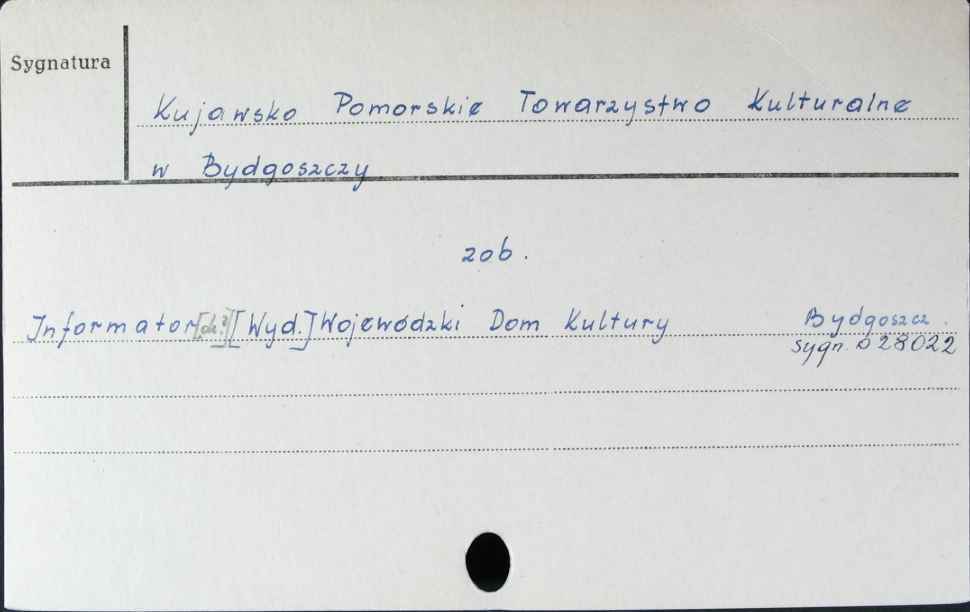 Sygnatura
Kujawsko Pomorskie Towarzystwo Kulturalne
w Bydgoszczy
zob.
Informator [Wyd.] Wojewódzki Dom Kultury Bydgoszcz.
sygn. D 28022